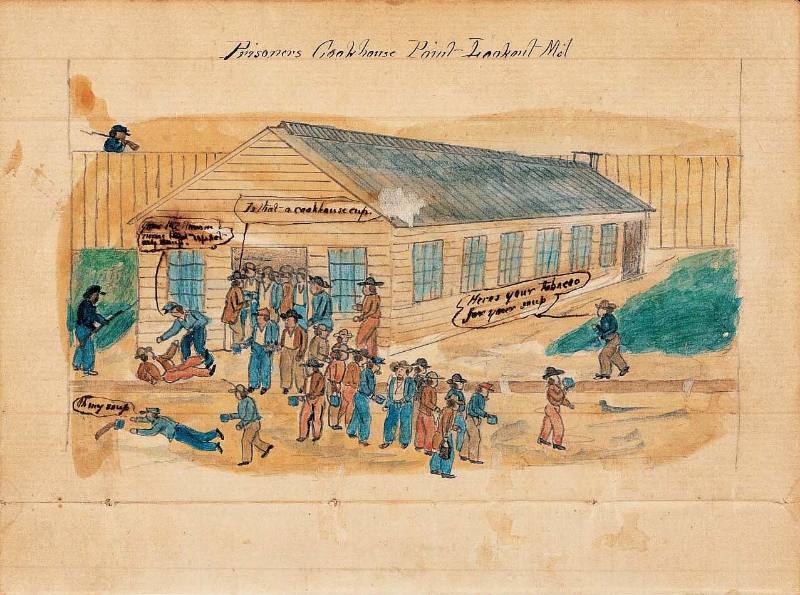 Prisoners Cookhouse Point Lookout Md
Is that a cookhouse cup.
Heres your tobacco
for your soup
Oh my soup